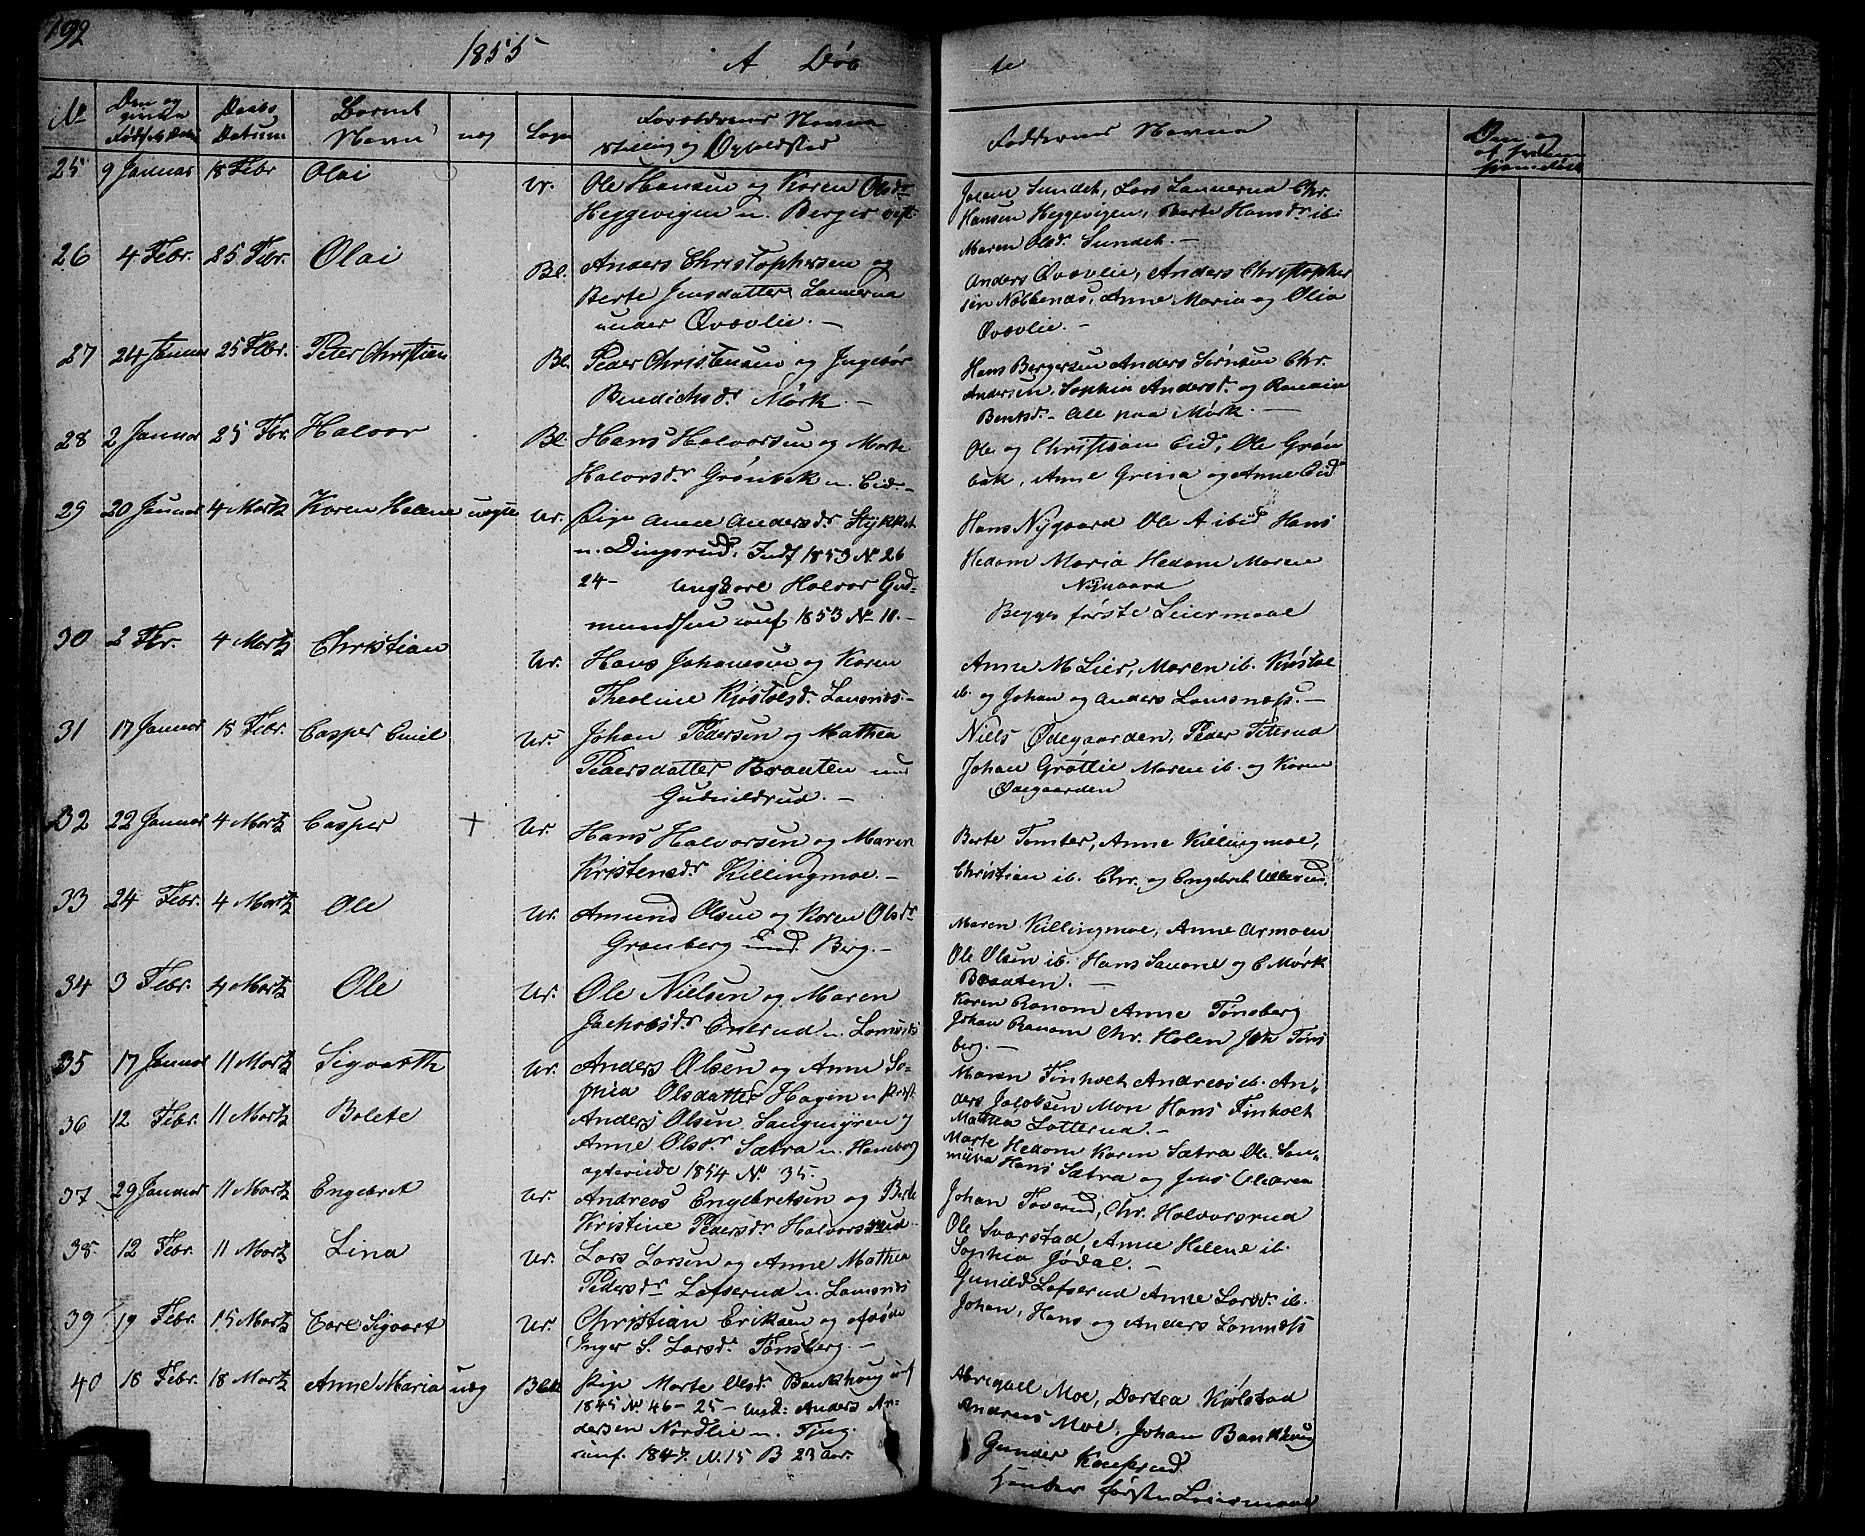 192
1855 A Døb te
No Den og Fødsels Datum Daabs Datum Barnets Navn uæg Sogn Forældrenes Navne Stilling og Opholdssted Fadderenes Navne
25 9 Januar 18 Febr Olai Ur. Ole Hansen og Karen Olsdr
Heggevigen u. Berger
Sundet, Lars Lannerud Chr.
Hansen Heggevigen, Berte Hansdr ib.
Maren Olsdr Sundet. —
26 4 Febr. 25 Febr. Olai Bl. Anders Christophersen og
Berte Jensdatter Lannerud
under Qvavlie. —
Anders Qvavlie, Anders Christopher
sen Nabbenas, Anne Maria og Olia
Qvavlie. —
27 24 Januar 25 Febr. Peter Christian Bl. Peder Christensen og Ingebor
Bendichsdr Mørk. —
Hans Bergersen Anders Chr.
Andersen, Sophia Andersdr og
Bentsdr — Alle paa Mørk. —
28 2 Januar 25 Fbr. Halvor Bl. Hans Halvorsen og Marte
Halvorsdr Grønbek u. Eid. —
Ole og Christian Eid, Ole Grøn
bek, Anne Grina og Anne Eid
29 20 Januar 4 Martz Karen Helene uægte Ur. Pige Anne Andersdr Stykket
u. Dingsrud. Indf 1853 No 26
24 — Ungkarl Halvor Gud-
mundsen conf 1853 No 10. —
Hans Nygaard Ole A ibid Hans
Hedom Maria Hedom Maren
Nygaard
Begges første Leiermaal
30 2 Fbr. 4 Martz Christian Ur. Hans Johanesen og Karen
Theoline Kjøstelsdr Lamsnes. —
Anne M Lier, Maren ib. Kjøstel
ib. og Johan og Anders Lomsness. —
31 17 Januar 18 Febr. Casper Emil Ur. Johan Pedersen og Mathea
Pedersdatter Braaten und
Gudmildrud. —
Niels Ødegaarden, Peder Piterud
Johan Grøtlie Maren ib. og Karen
Ødegaarden
32 22 Januar 4 Martz Casper + Ur. Hans Halvorsen og Maren
Kristensdr Killingmoe. —
Berte Tomter, Anne Killingmoe,
Christian ib. Chr. og Engebret Ullerud.
33 24 Febr. 4 Martz Ole Ur. Amund Olsen og Karen Olsdr
Granberg und Berg. —
Maren Killingmoe, Anne Armoen
Ole Olsen ib. Hans Savne og C Mørk
Braaten. —
34 3 Febr. 4 Martz Ole Ur. Ole Nielsen og Maren
Jachobsdr Enerud u. Lomsnes
Karen Ranom Anne Tønsberg
Johan Ranom Chr. Holen Joh Tøns
berg. —
35 17 Januar 11 Martz Sigvarth Ur. Anders Olsen og Anne So-
phia Olsdatter Hagen u Prest.
Maren Finholt Andreas ib. An-
ders Jacobsen Mon Hans Finholt
Mathea Lotterud. —
36 12 Febr. 11 Martz Bolete Anders Olsen Sangmyren og
Anne Olsdr Sætra u. Hamborg
1854 No. 35.
Marte Hedom Karen Sætra Ole San-
myra Hans Sætra og Jens
37 29 Januar 11 Martz Engebret Ur. Andreas Engebretsen og Berte
Kristine Pedersdr Halvorsrud.
Johan Toverud, Chr. Halvorsrud
Ole Svarstad Anne Helene ib.
Sophia Jødal. —
38 12 Febr. 11 Martz Lina Ur. Lars Larsen og Anne Mathea
Pedersdr Lofserud u. Lomsnes
Gunild Lofserud Anne Larsdr ib.
Johan, Hans og Anders Lomness
39 19 Febr. 15 Martz Carl Sigvart Ur. Christian Eriksen og afdøde
Inger S. Larsdr Tønsberg. —
40 18 Febr. 18 Martz Anne Maria uæg Blk Pige Marte Olsdr Bankhaug inf
1845 No 46 — 25 — Ungk: Anders An-
dersen Nordlie u. Tjug.
conf. 1847. N. 15 B 23 Aar.
Abrigael Moe, Dortea Kjølstad
Andreas Moe, Johan Bankhaug
Gunder Kauserud
første Leiermaal